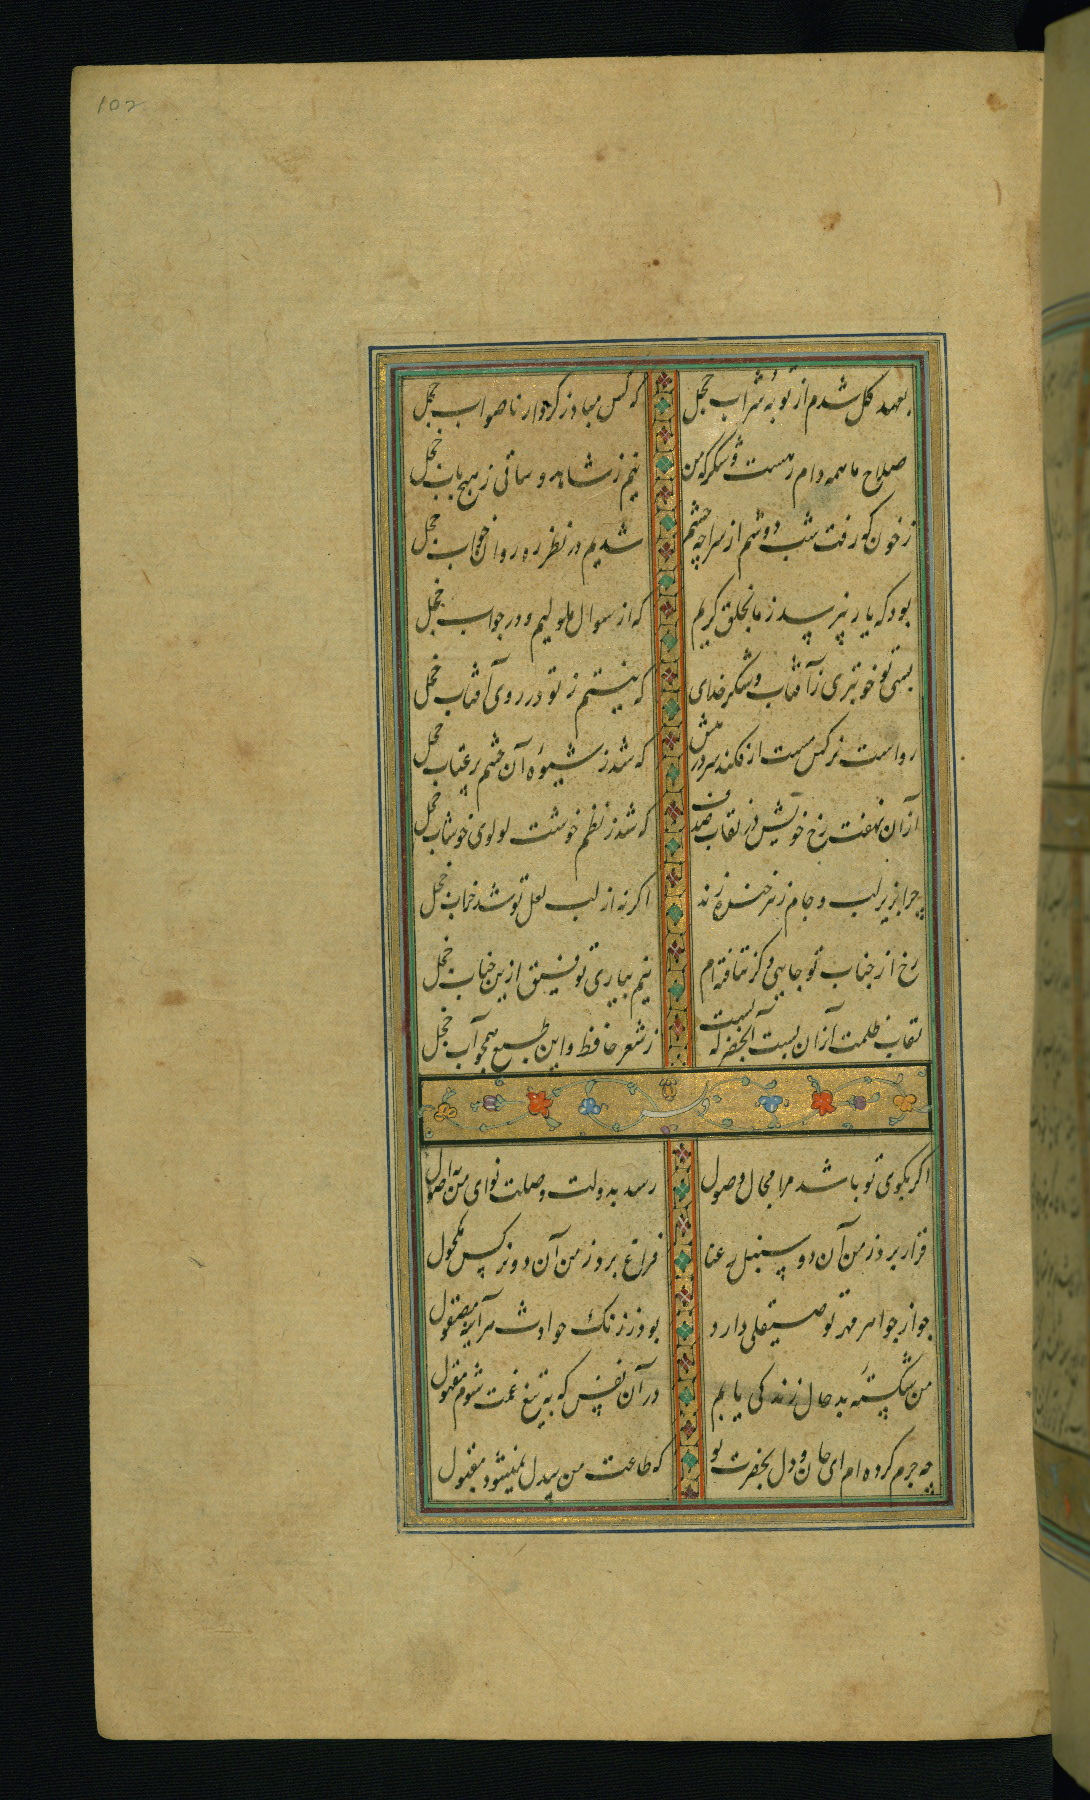 102
بعهد کل شدم از توبهٔ شراب خجل که کس مباد ز کردار ناصواب خجل
صلاح ما همه دام رهست و شکر که من نیم ز شاهد و ساقی ز هیچ باب خجل
ز خون که رفت شب دوشم از سراچه چشم شدیم در نظر ره روان خواب خجل
بود که یار نپرسد ز ما بخلق کریم که از سوال ملولیم و در جواب خجل
تویی خوبتری ز آفتاب و شکر خدای که نیستم ز تو در روی آفتاب خجل
رواست نرکس مست از فکند سر در پیش که شد ز شیوهٔ آن چشم پر عتاب خجل
از آن نهفت رخ خویش در نقاب صدف که شد ز نظم خوشت لولوی خوشاب خجل
چرا بزیر لب و جام زهر خنده زند اکر نه از لب لعل تو شد خراب خجل
رخ از جناب تو جایی دکر نتافته ام نیم بیاری توفیق ازین جناب خجل
نقاب ظلمت از آن بست آبخضر که بست ز شعر حافظ و این طبع همچو آب خجل
اکر بکوی تو باشد مرا مجال وصول رسد بدولت وصلت نوای من باصول
قرار برد ز من آن دو سنبل رعنا فراغ برد ز من آن دو نرکس مکحول
چو از جواهر مهر تو صیقلی دارد بود ز زنک حوادث هر آینه مصقول
من شکستهٔ بد حال زندکی یابم در آن نفس که بتیغ غمت شوم مقتول
چه جرم کرده ام ای جان و دل بحضرت تو که طاعت من بیدل نمیشود مقبول